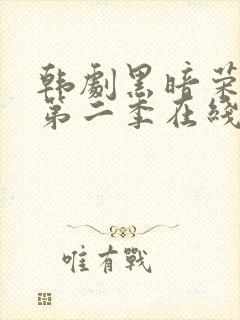 韩劇黑暗荣
第二季在綫
唯有戰